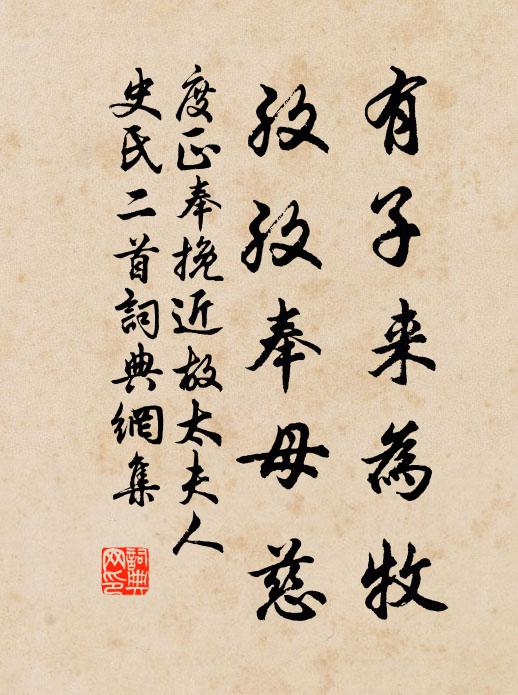 有子来為牧
孜孜奉母慈
度正奉挽近故太夫人
史氏二首詞典網集
詞典网印